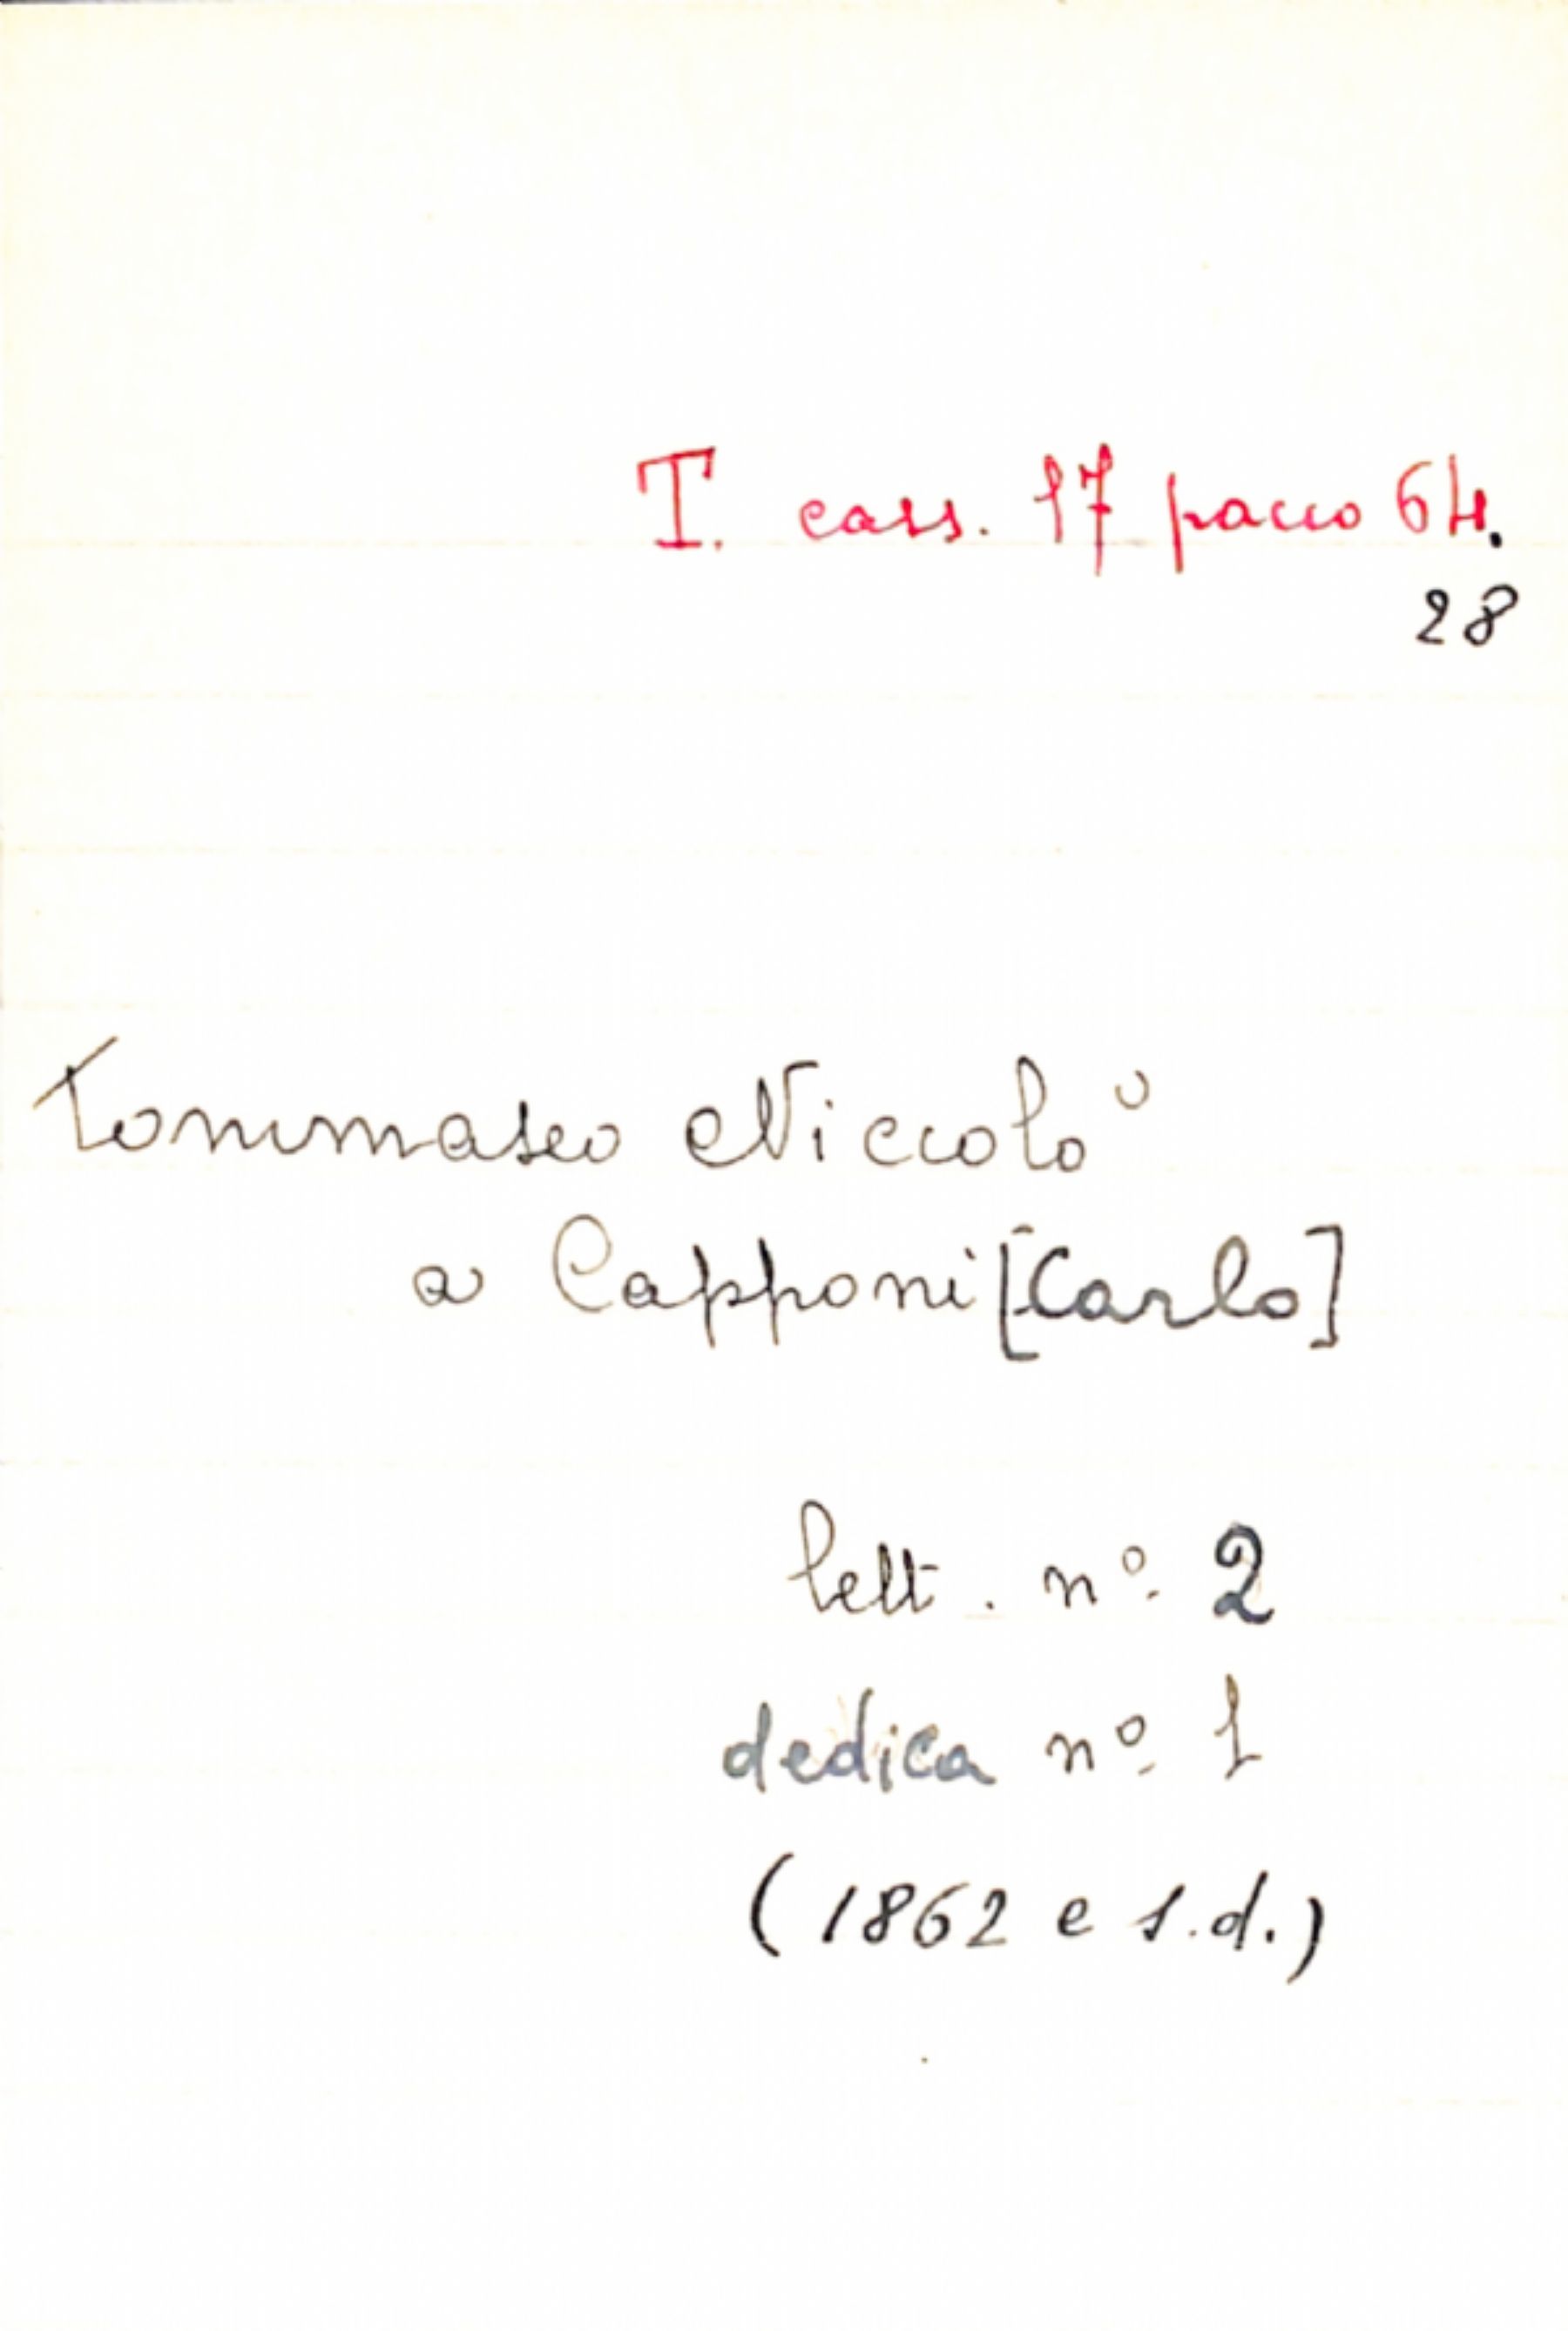 T. cass. 17 pacco 64.
28
Tommaseo Niccolò
a Capponi [Carlo]
lett. nº 2
dedica nº 1
(1862 e s.d.)